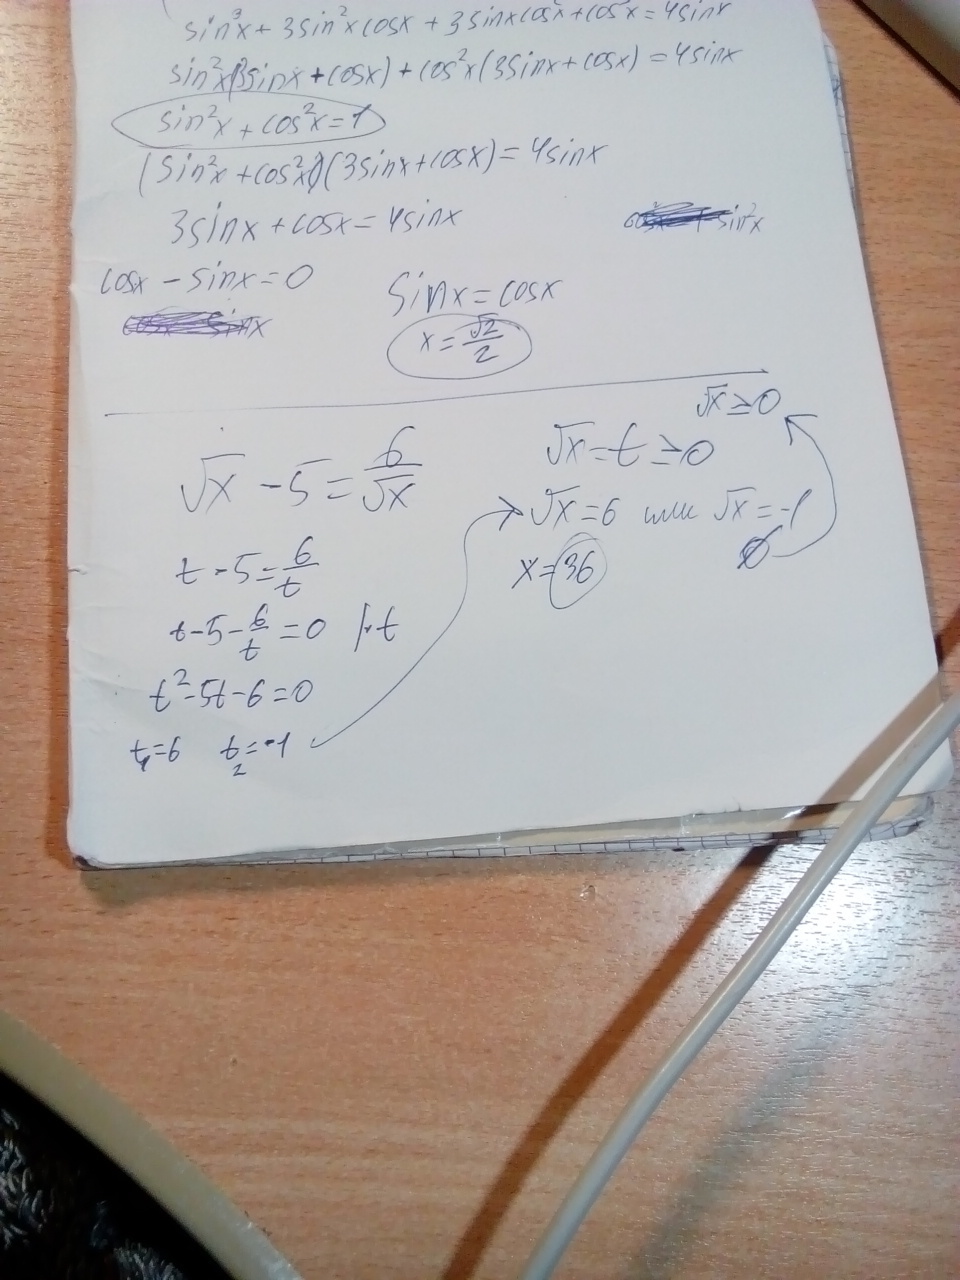 sin³x + 3sin²xcosx + 3sinxcos²x + cos³x = 4sinx
sin²x(3sinx + cosx) + cos²x(3sinx + cosx) = 4sinx
sin²x + cos²x = 1
(sin²x + cos²x)(3sinx + cosx) = 4sinx
3sinx + cosx = 4sinx
sin²x
cosx - sinx = 0
sinx = cosx
x = √2/2
√x ≥ 0
√x - 5 = 6/√x
√x = t ≥ 0
√x = 6 или √x = -1
t - 5 = 6/t
x = 36
∅
t - 5 - 6/t = 0 |·t
t² - 5t - 6 = 0
t₁ = 6 t₂ = -1